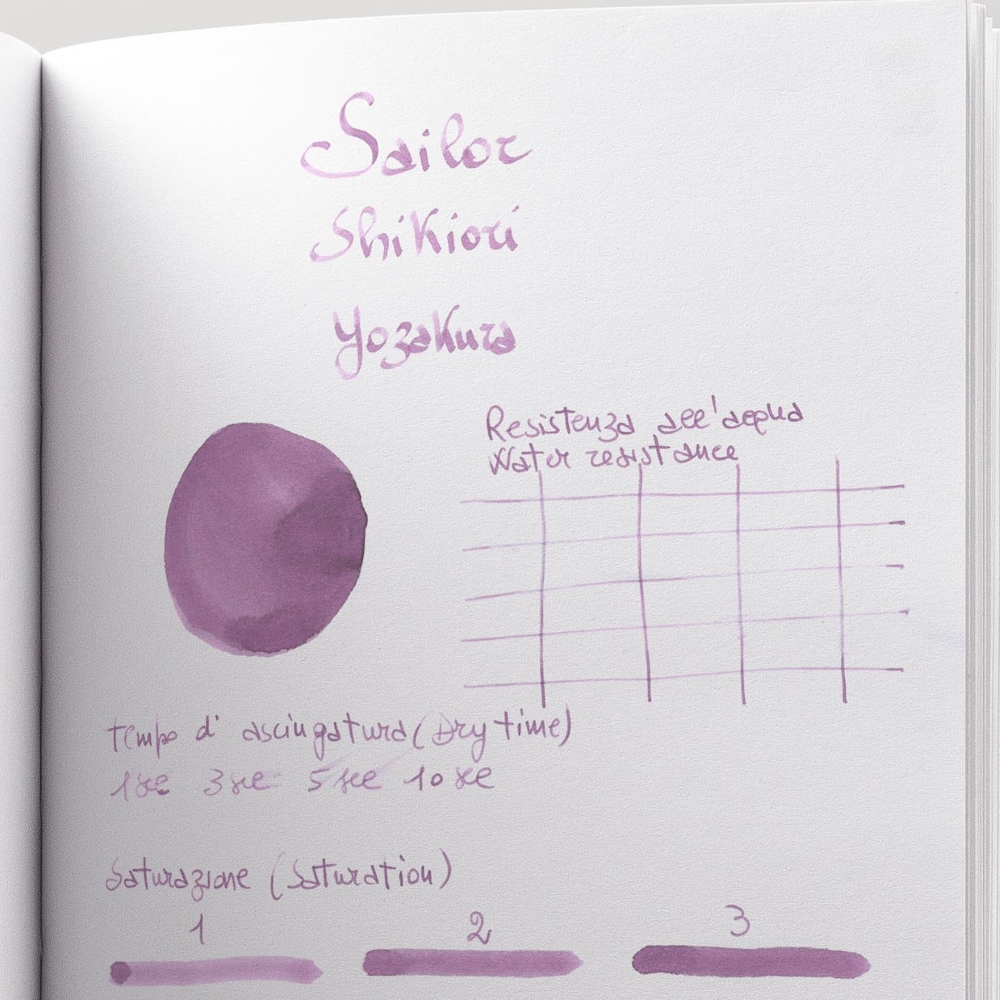 Sailor
Shikiori
Yozakura
Resistenza all'acqua
Water resistance
Tempo d'asciugatura (Dry time)
1 sec 3 sec 5 sec 10 sec
Saturazione (Saturation)
1 2 3